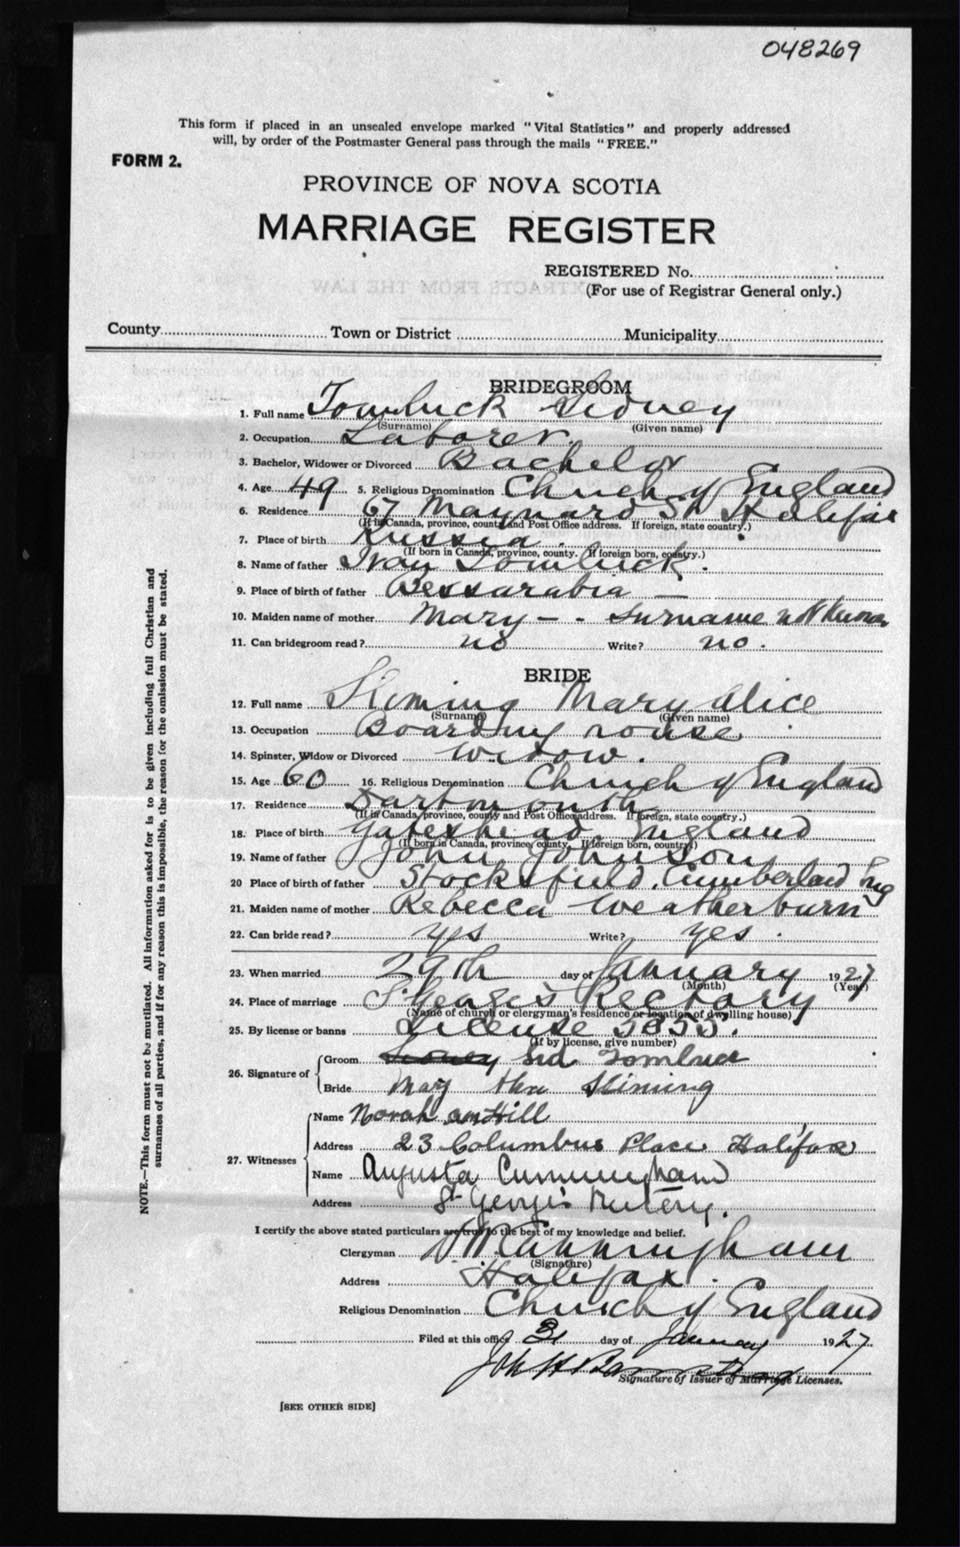 048269
This form if placed in an unsealed envelope marked "Vital Statistics" and properly addressed
will, by order of the Postmaster General pass through the mails "FREE."
FORM 2.
PROVINCE OF NOVA SCOTIA
MARRIAGE REGISTER
REGISTERED No.
(For use of Registrar General only.)
County Town or District Municipality
BRIDEGROOM
1. Full name Tomluck Sidney
(Surname) (Given name)
2. Occupation Laborer.
3. Bachelor, Widower or Divorced Bachelor
4. Age 49 5. Religious Denomination Church of England
6. Residence 67 Maynard St. Halifax
(If in Canada, province, county and Post Office address. If foreign, state country.)
7. Place of birth Russia.
(If born in Canada, province, county. If foreign born, country.)
8. Name of father Ivan Tomluck.
9. Place of birth of father Bessarabia —
10. Maiden name of mother Mary — . Surname not known
11. Can bridegroom read? no Write? no.
BRIDE
12. Full name Mary Alice
(Surname) (Given name)
13. Occupation Boarding house
14. Spinster, Widow or Divorced Widow.
15. Age 60 16. Religious Denomination Church of England
17. Residence Dartmouth
(If in Canada, province, county and Post Office address. If foreign, state country.)
18. Place of birth Gateshead England
(If born in Canada, province, county. If foreign born, country.)
19. Name of father John Johnson
20 Place of birth of father Stocksfield, Cumberland Eng
21. Maiden name of mother Rebecca Weatherburn
22. Can bride read? yes Write? yes.
23. When married 29th day of January 1927
(Month) (Year)
24. Place of marriage St George's Rectory
(Name of church or clergyman's residence or location of dwelling house)
25. By license or banns License 5855.
(If by license, give number)
26. Signature of
Groom Sidney Sid
Bride Mary
27. Witnesses
Name Norah Hill
Address 23 Columbus Place Halifax
Name Augusta Cunningham
Address St George's Rectory.
I certify the above stated particulars are true to the best of my knowledge and belief.
Clergyman Cunningham
(Signature)
Address Halifax.
Religious Denomination Church of England
Filed at this office 31 day of January 1927
Signature of Issuer of Marriage Licenses.
[SEE OTHER SIDE]
NOTE.—This form must not be mutilated. All information asked for is to be given including full Christian and
surnames of all parties, and if for any reason this is impossible, the reason for the omission must be stated.